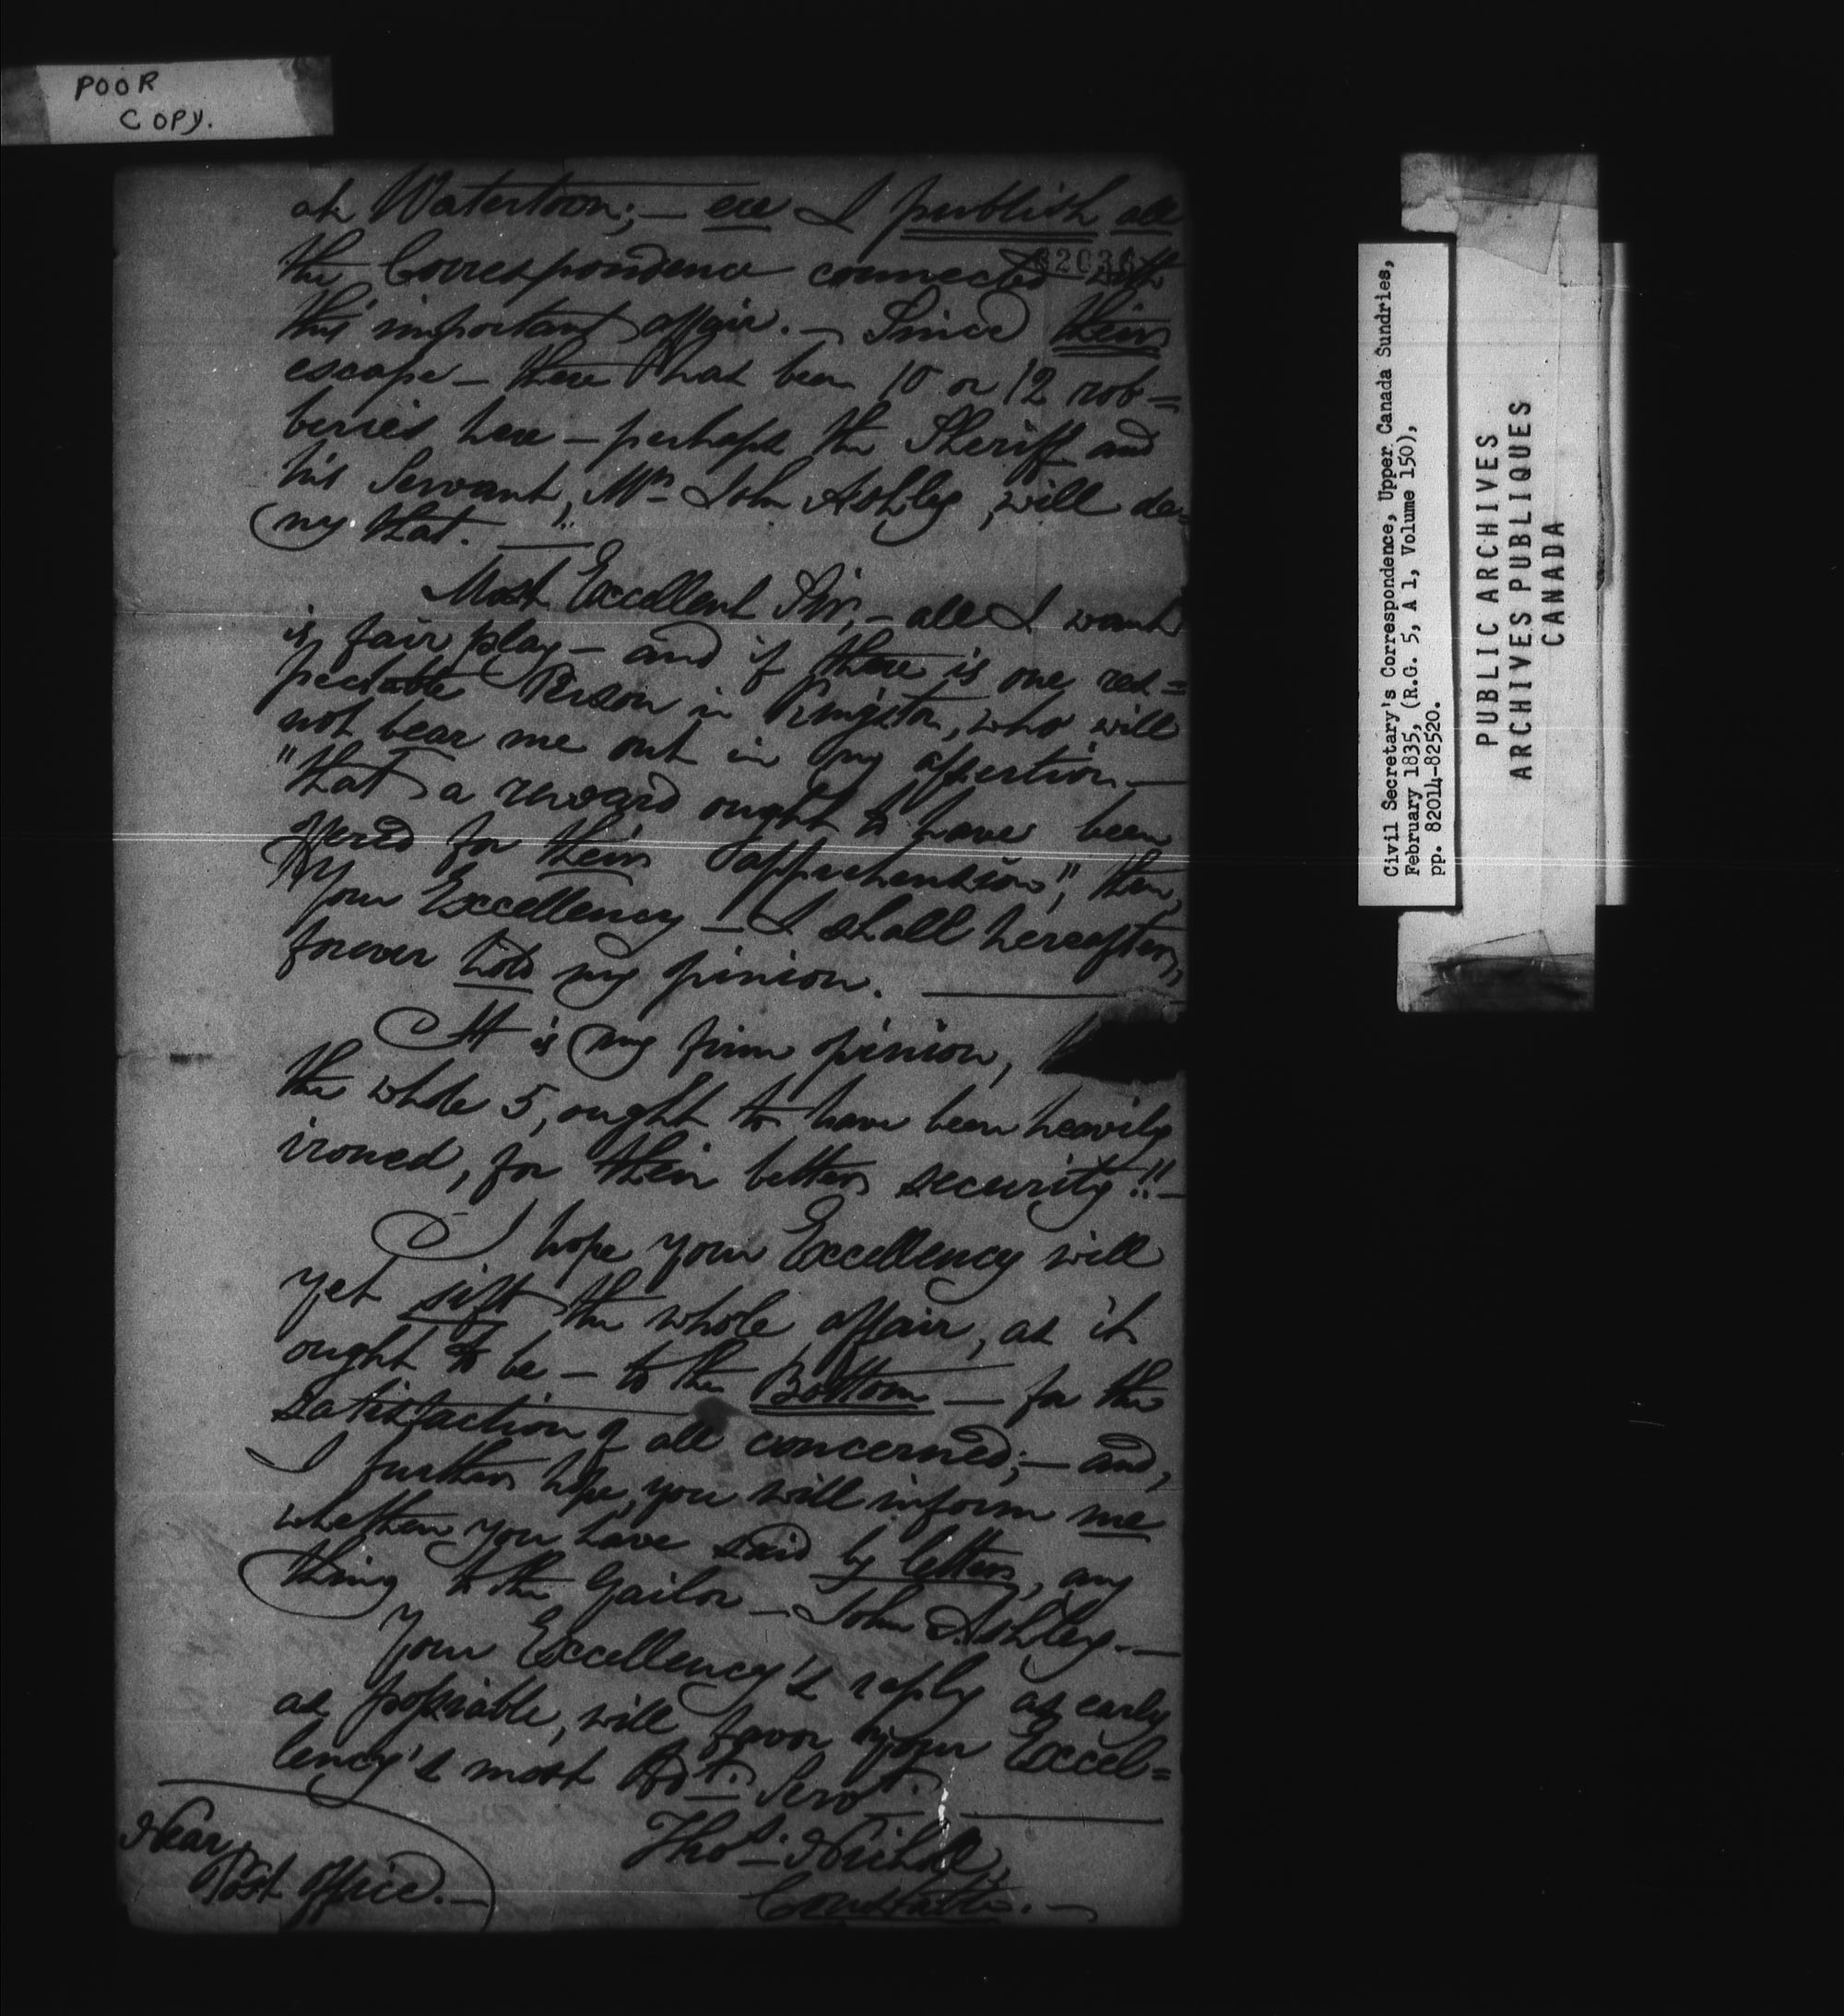 POOR
COPY.
at Watertown; — ere I publish all
the Correspondence connected with
this important affair. — Since their
escape — there has been 10 or 12 rob=
beries here — perhaps the Sheriff and
his Servant, Mr. John Ashley, will de=
ny that. — !!
Most Excellent Sir, — all I want
is fair play — and if there is one res=
pectable Person in Kingston, who will
not bear me out in my assertion —
"that a reward ought to have been
offered for their apprehension", then,
Your Excellency — I shall hereafter,
forever hold my opinion.
It is my firm opinion,
the whole 5, ought to have been heavily
ironed, for their better security!! —
I hope your Excellency will
yet sift the whole affair, as it
ought to be — to the Bottom — for the
satisfaction of all concerned; — and,
I further hope, you will inform me
whether you have said by letter, any
thing to the Gailor — John Ashley. —
Your Excellency's reply as early
as possiable, will favor your Excel=
lency's most Obt. Servt.
Thos. Nichol,
Constable. —
Near
Post Office. —
Civil Secretary's Correspondence, Upper Canada Sundries,
February 1835, (R.G. 5, A 1, Volume 150),
pp. 82014-82520.
PUBLIC ARCHIVES
ARCHIVES PUBLIQUES
CANADA